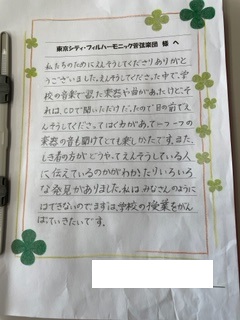 東京シティ・フィルハーモニック管弦楽団 様 へ
私たちのためにえんそうしてくださりありがと
うございました。えんそうしてくださった中で、学
校の音楽で習った楽器や曲があったけど、そ
れは、CDで聞いただけだったので目の前でえ
んそうしてくださってはく力があって一つ一つの
楽器の音も聞けてとても楽しかったです。また、
しき者の方がどうやってえんそうしている人
に伝えているのかがわかったりいろいろ
な発見がありました。私は、みなさんのように
はできないのでまずは、学校の授業をがん
ばっていきたいです。